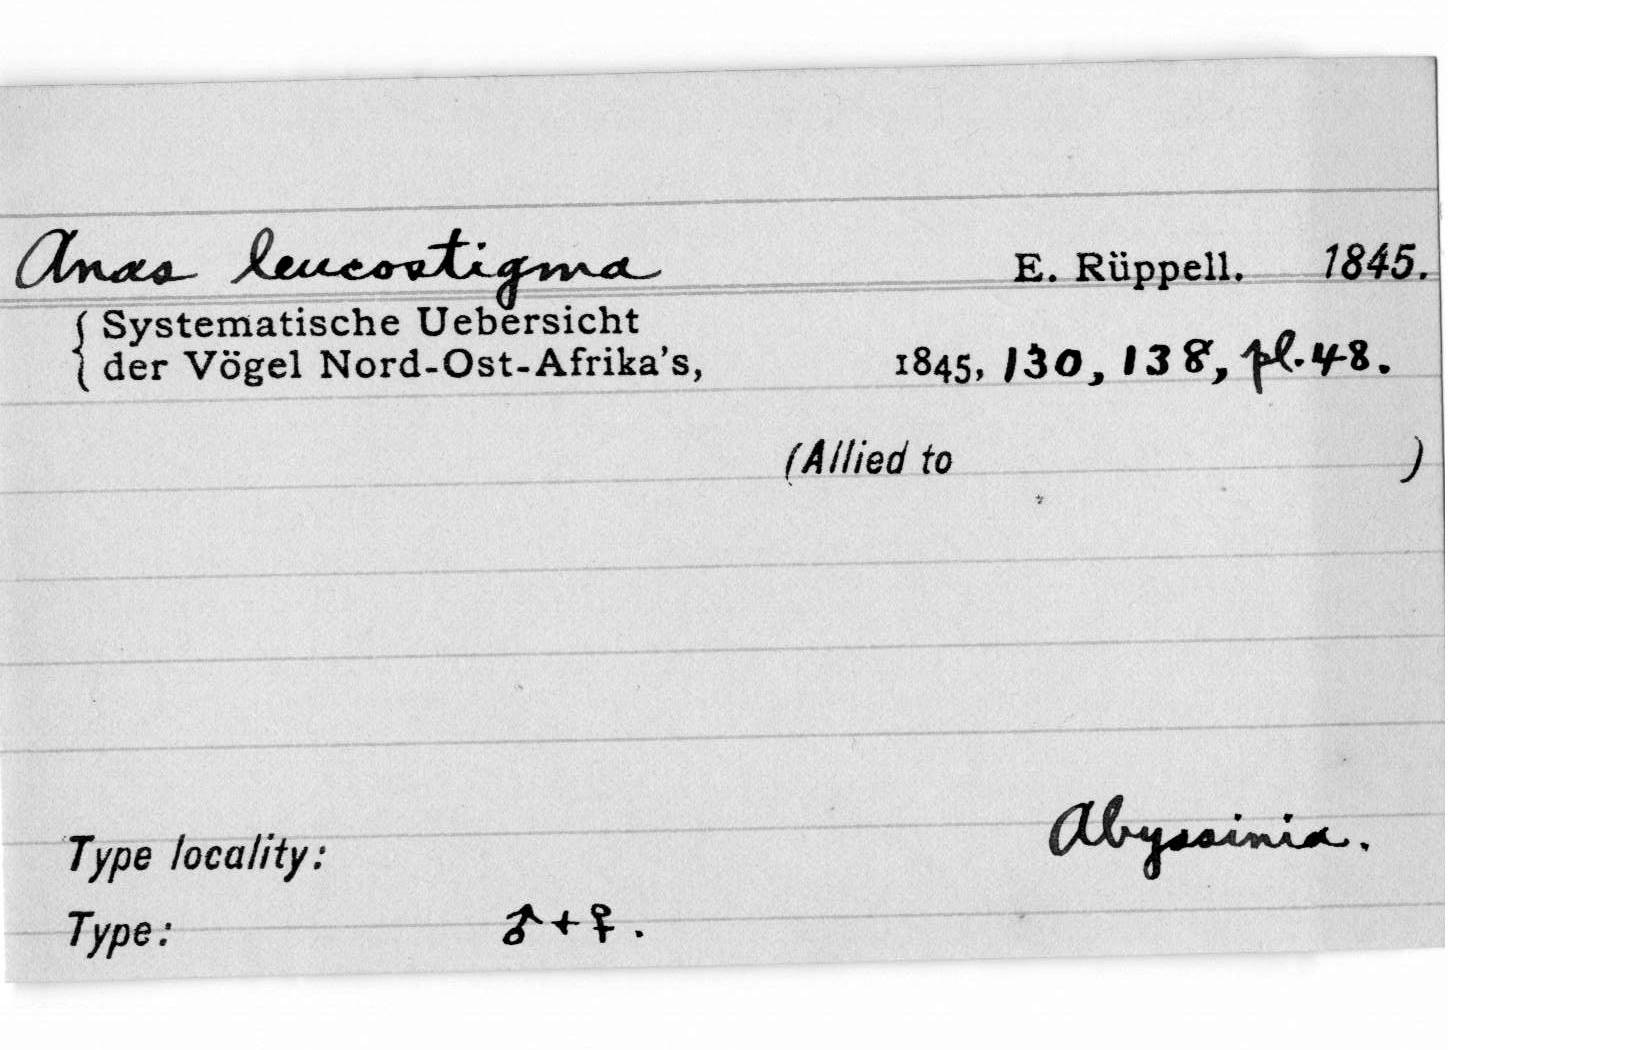 Anas leucostigma E. Rüppell. 1845.
{ Systematische Uebersicht
der Vögel Nord-Ost-Afrika's, 1845, 130, 138, pl. 48.
(Allied to )
Type locality: Abyssinia.
Type: ♂ + ♀.